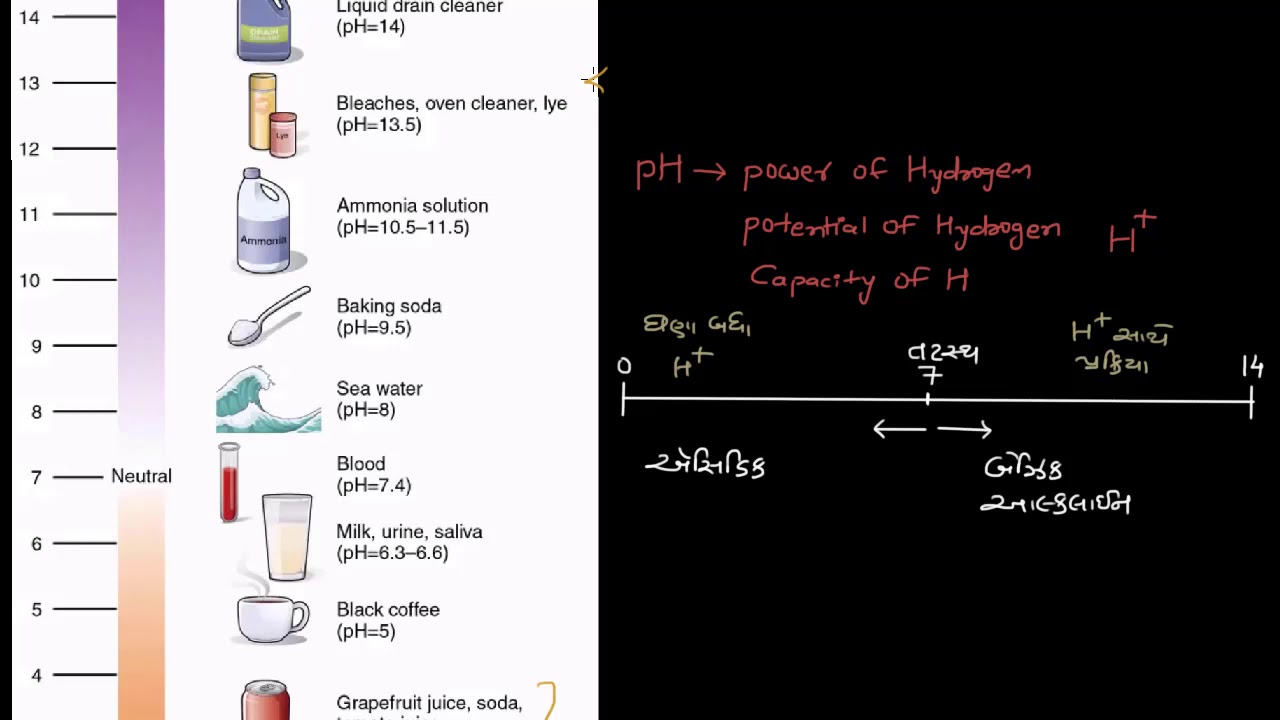 14
Liquid drain cleaner
(pH=14)
DRAIN
13
Bleaches, oven cleaner, lye
(pH=13.5)
Lye
12
11
Ammonia solution
(pH=10.5–11.5)
Ammonia
10
Baking soda
(pH=9.5)
9
Sea water
(pH=8)
8
Blood
(pH=7.4)
7
Neutral
Milk, urine, saliva
(pH=6.3–6.6)
6
Black coffee
(pH=5)
5
4
Grapefruit juice, soda,
pH → power of Hydrogen
potential of Hydrogen H+
Capacity of H
ઘણા બધા
H+
H+ સાથે
પ્રક્રિયા
તટસ્થ
0 7 14
એસિડિક
બેઝિક
આલ્કલાઈન